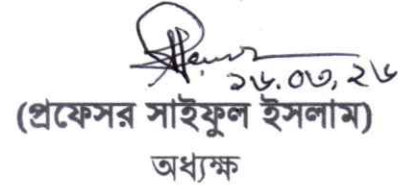 ১৬.০৩.২৬
(প্রফেসর সাইফুল ইসলাম)
অধ্যক্ষ